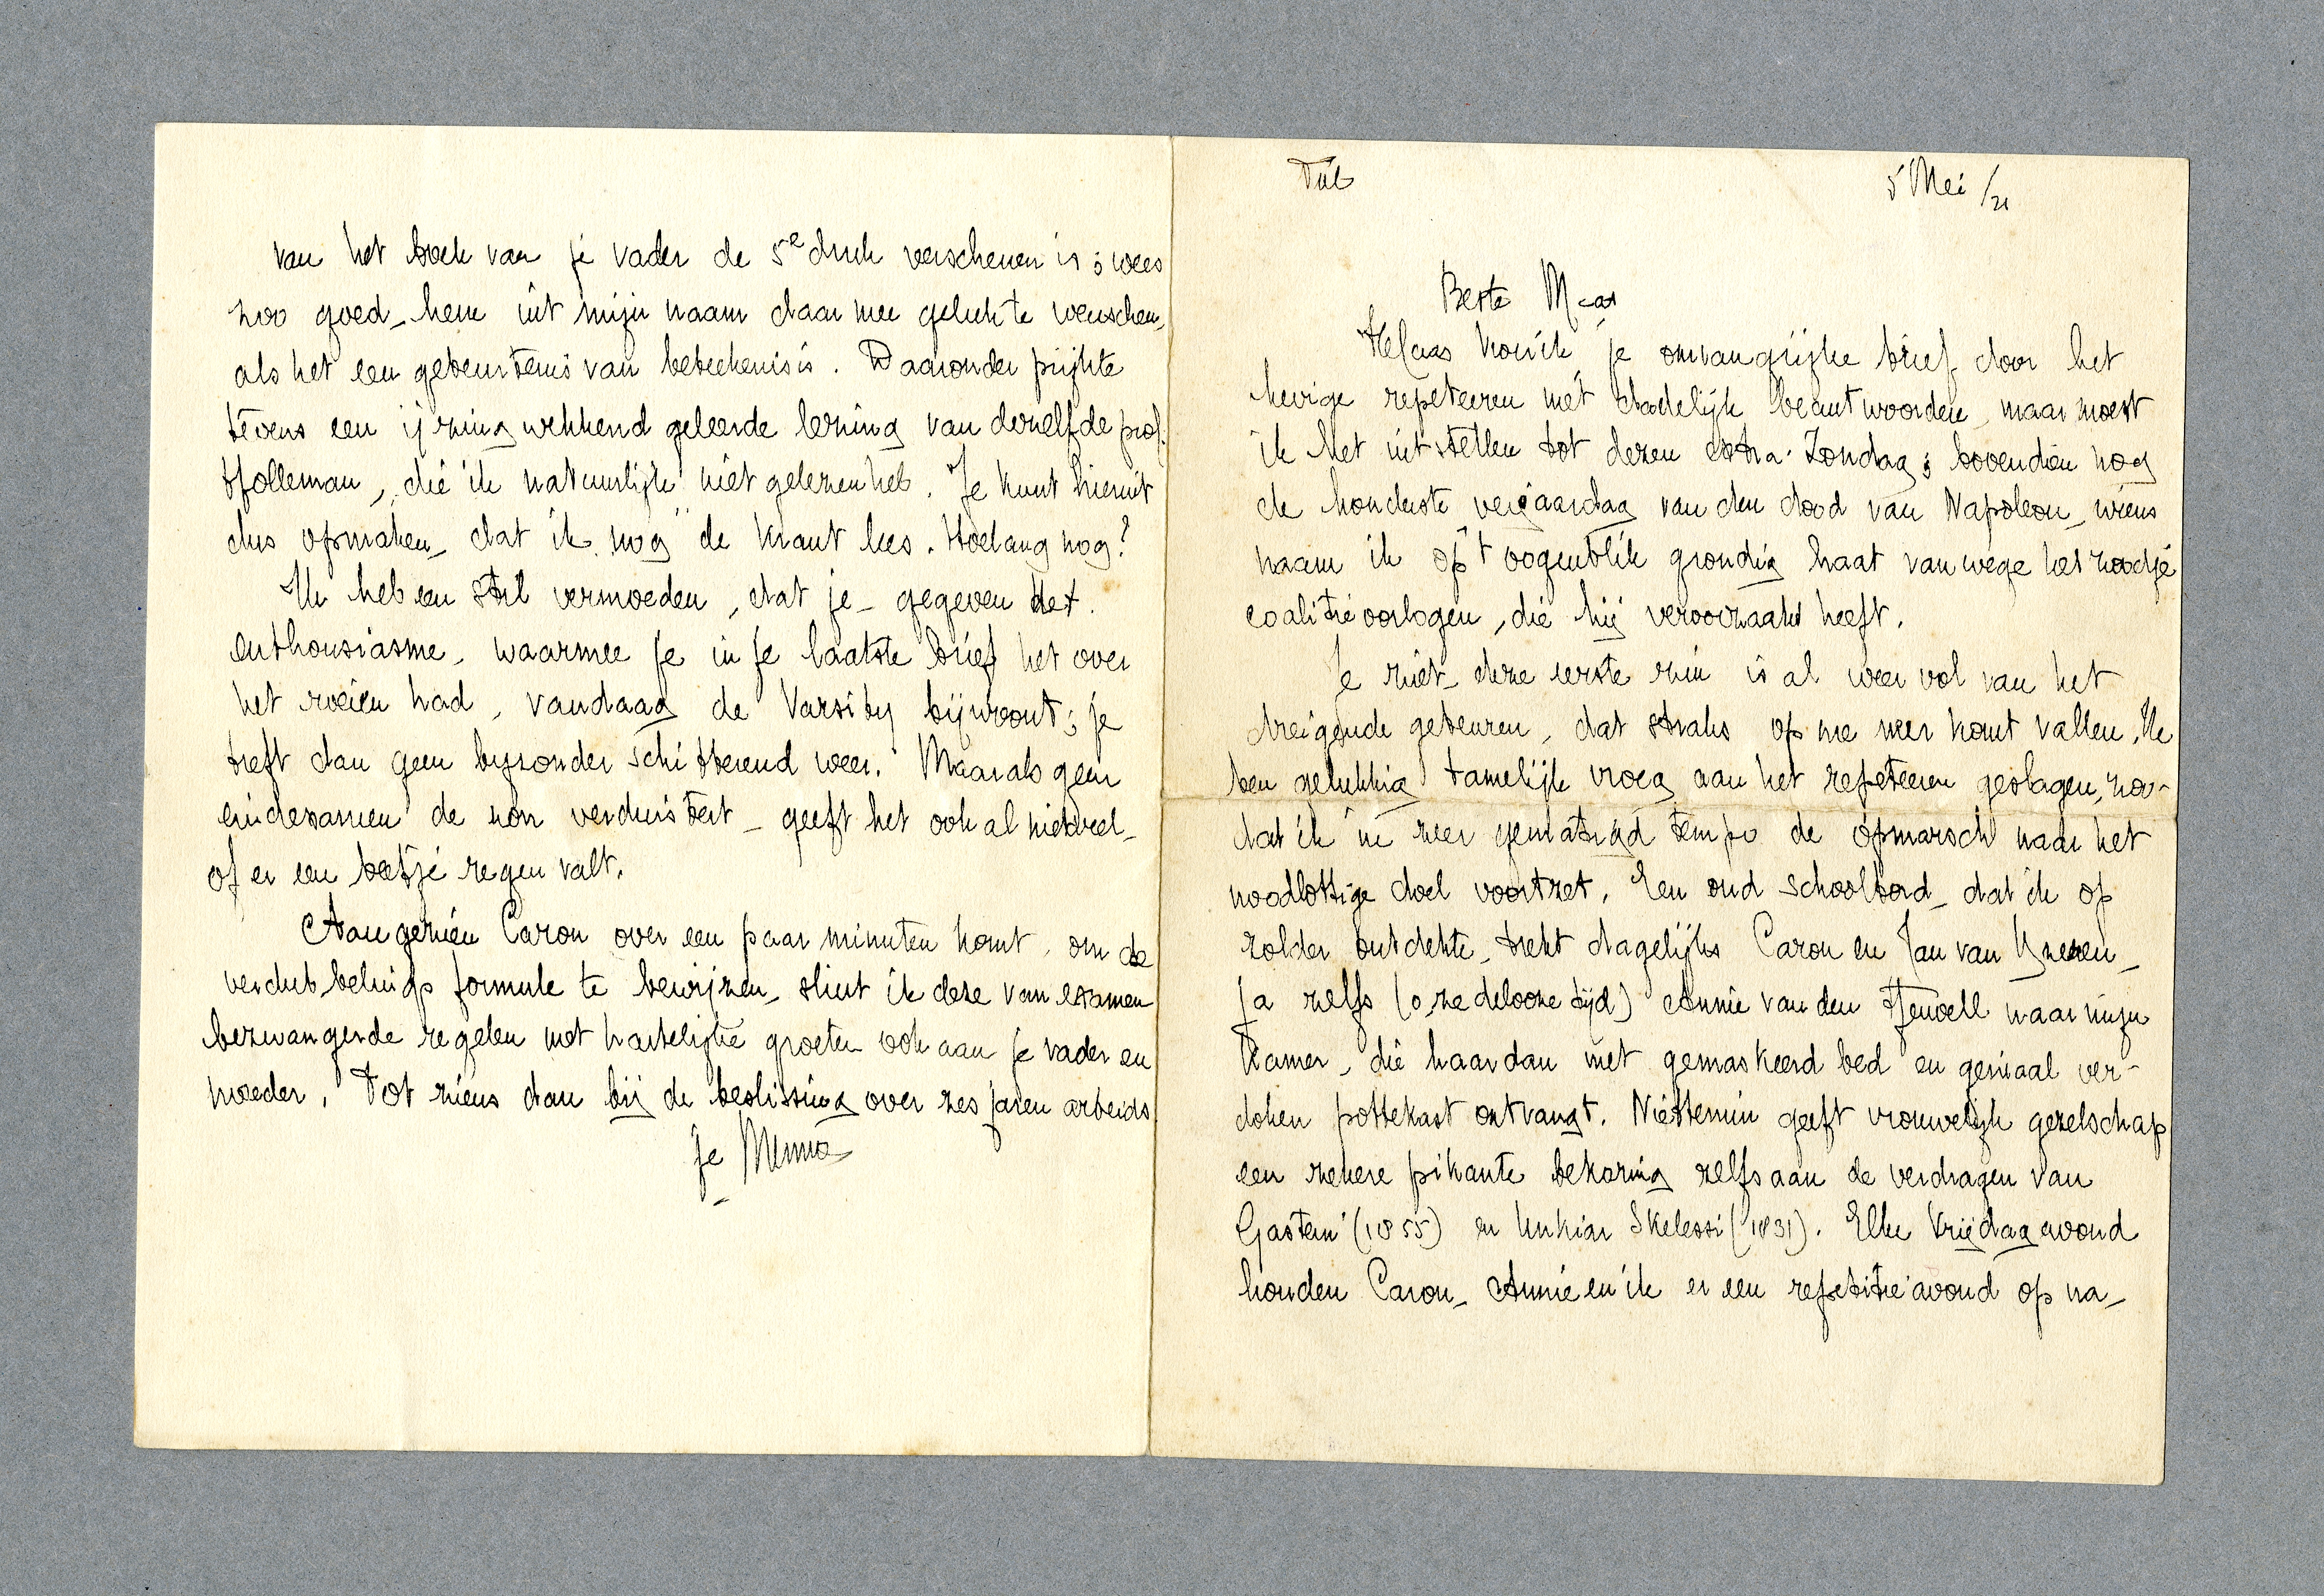 Tiel
5 Mei /21
Beste M
Helaas kon ik je omvangrijke brief door het
hevige repeteeren niet dadelijk beantwoorden, maar moest
ik het uitstellen tot dezen extra-Zondag; bovendien nog
de honderste verjaardag van den dood van Napoleon, wiens
naam ik op 't oogenblik grondig haat van wege het zoodje
coalitieoorlogen, die hij veroorzaakt heeft.
Je ziet deze eerste zin is al weer vol van het
dreigende gebeuren, dat straks op me neer komt vallen. Ik
ben gelukkig tamelijk vroeg aan het repeteeren geslagen, zoo-
dat ik in zeer gematigd tempo de opmarsch naar het
noodlottige doel voortzet. Een oud schoolbord, dat ik op
zolder ontdekte, trekt dagelijks Caron en Jan van IJzeren,
ja zelfs (o, zedelooze tijd) Annie van den Heuvell naar mijn
kamer, die haar dan met gemaskeerd bed en geniaal ver-
doken pottekast ontvangt. Niettemin geeft vrouwelijk gezelschap
een zekere pikante bekoring zelfs aan de verdragen van
Gastein (1855) en Unkiar Skelessi (1831). Elke Vrijdagavond
houden Caron, Annie en ik er een repetitieavond op na,
van het boek van je vader de 5e druk verschenen is; wees
zoo goed, hem uit mijn naam daarmee geluk te wenschen,
als het een gebeurtenis van beteekenis is. Daaronder prijkte
tevens een ijzingwekkend geleerde lezing van denzelfde prof.
Holleman, die ik natuurlijk niet gelezen heb. Je kunt hieruit
dus opmaken, dat ik nog de krant lees. Hoelang nog?
Ik heb een stil vermoeden, dat je, gegeven het
enthousiasme, waarmee je in je laatste brief het over
het roeien had, vandaag de Varsity bijwoont; je
treft dan geen byzonder schitterend weer. Maar als geen
eindexamen de zon verduistert, geeft het ook al niet veel,
of er een beetje regen valt.
Aangezien Caron over een paar minuten komt, om de
verdubbelings formule te bewijzen, sluit ik deze van examen
bezwangerde regelen met hartelijke groeten ook aan je vader en
moeder. Tot ziens dan bij de beslissing over zes jaren arbeids
je Menno